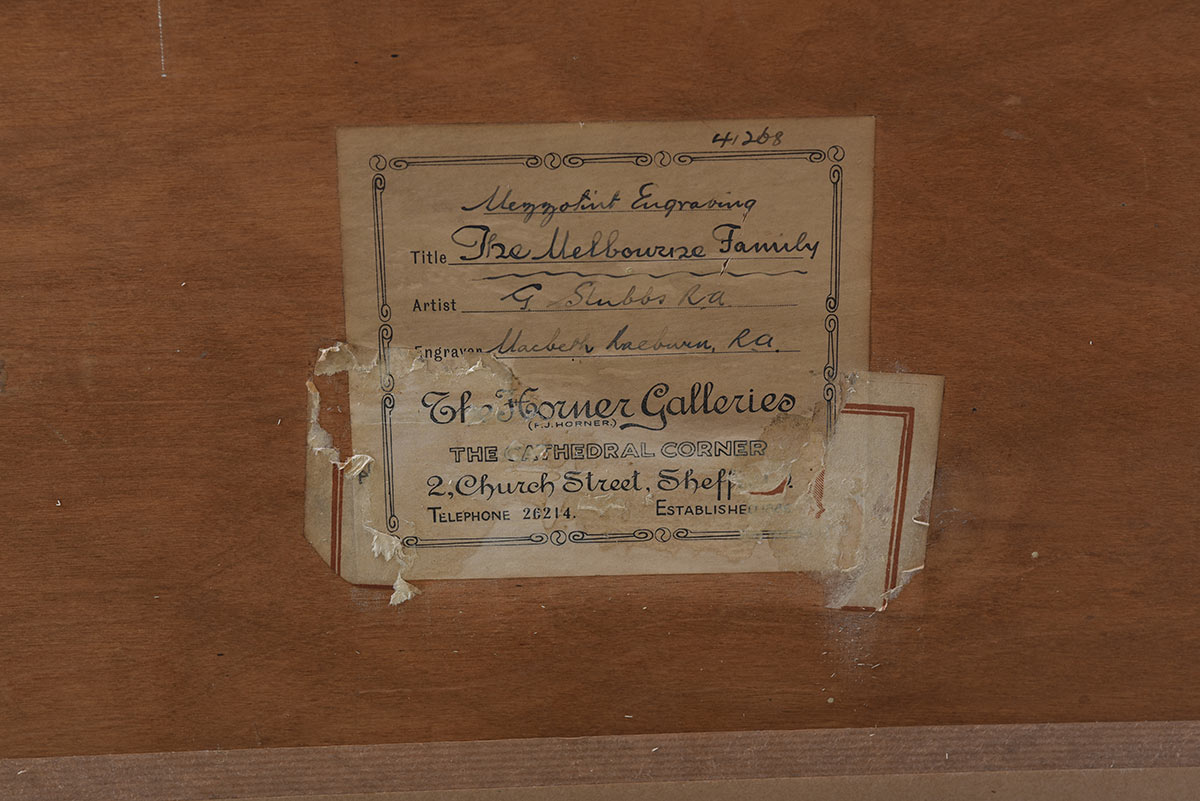 41268
Mezzotint Engraving
Title The Melbourne Family
Artist G Stubbs R.a
Engraver Macbeth Raeburn, R.a.
The Horner Galleries
(F.J. HORNER.)
THE CATHEDRAL CORNER
2, Church Street,
TELEPHONE 26214.